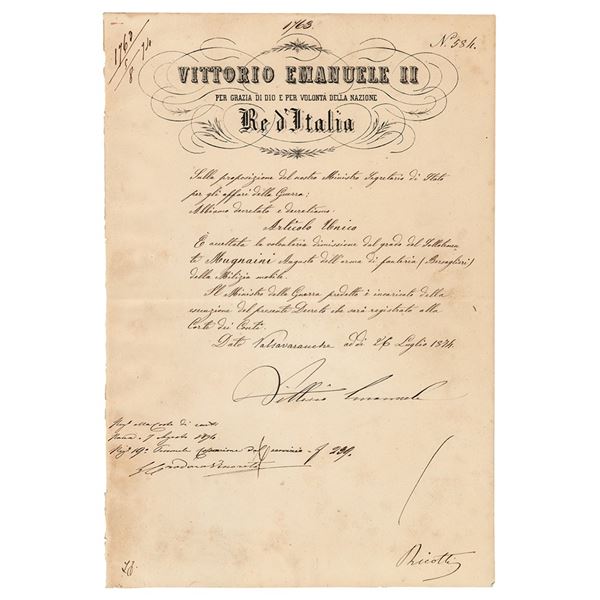 1763.
1763
8 74
No. 584.
VITTORIO EMANUELE II
PER GRAZIA DI DIO E PER VOLONTÀ DELLA NAZIONE
Re d'Italia
Sulla proposizione del nostro Ministro Segretario di Stato
per gli affari della Guerra;
Abbiamo decretato e decretiamo:
Articolo Unico
È accettata la volontaria dimissione dal grado del Sottotenen
te Mugnaini Augusto dell'arma di fanteria (Bersaglieri)
della Milizia mobile.
Il Ministro della Guerra predetto è incaricato della
esecuzione del presente Decreto che sarà registrato alla
Corte dei Conti.
Dato Valsavaranche addì 26 Luglio 1874.
Vittorio Emanuele
Regto alla Corte di conti
Roma 7 Agosto 1874
Rego 190 Personale f. 239.
Ricotti